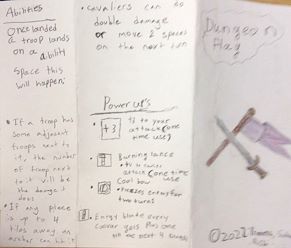 Abilities
Once landed
a troop lands
on a ability
space this
will happen:
• If a troop has
some adjacent
troops next to
it, the number
of troop next
to it will be
the damage it
does
• If any place
is up to 4
tiles away an
archer can hit it
• Cavaliers can do
double damage
or move 2 spaces
on the next turn
Power ups
+3
+3 to your
attack (one
time use)
Burning lance
attack (one time
use
• freezes enemy for
two turns
blade every
plus one
the next 4
Dungeon
Flag
©2021